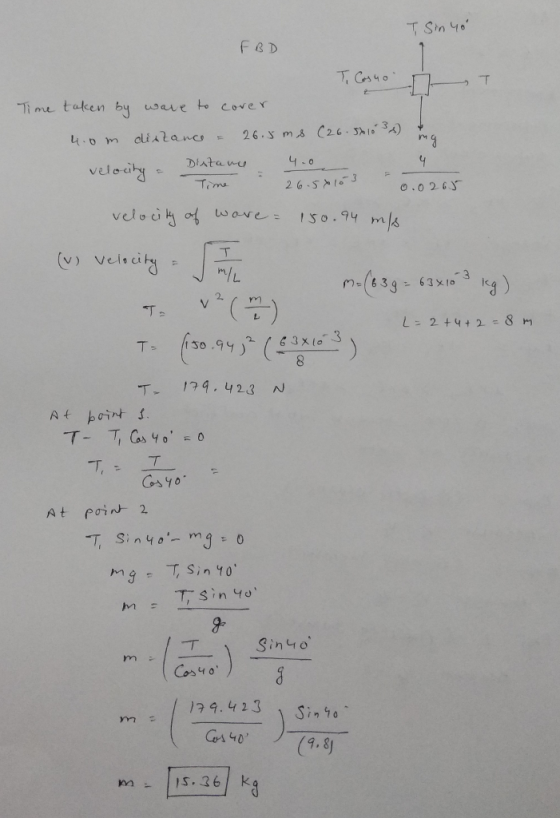 T₁ Sin 40°
FBD
T₁ Cos 40° T
mg
Time taken by wave to cover
4.0 m distance = 26.5 ms (26.5×10⁻³ s)
velocity = Distance / Time = 4.0 / 26.5×10⁻³ = 4 / 0.0265
velocity of wave = 150.94 m/s
(v) velocity = √(T / m/L)
m = (63g = 63×10⁻³ kg)
T = v² (m/L)
L = 2+4+2 = 8 m
T = (150.94)² (63×10⁻³ / 8)
T = 179.423 N
At point 1.
T - T₁ Cos 40° = 0
T₁ = T / Cos 40° =
At point 2
T₁ Sin 40° - mg = 0
mg = T₁ Sin 40°
m = T₁ Sin 40° / g
m = (T / Cos 40°) Sin 40° / g
m = (179.423 / Cos 40°) Sin 40° / (9.8)
m = 15.36 kg